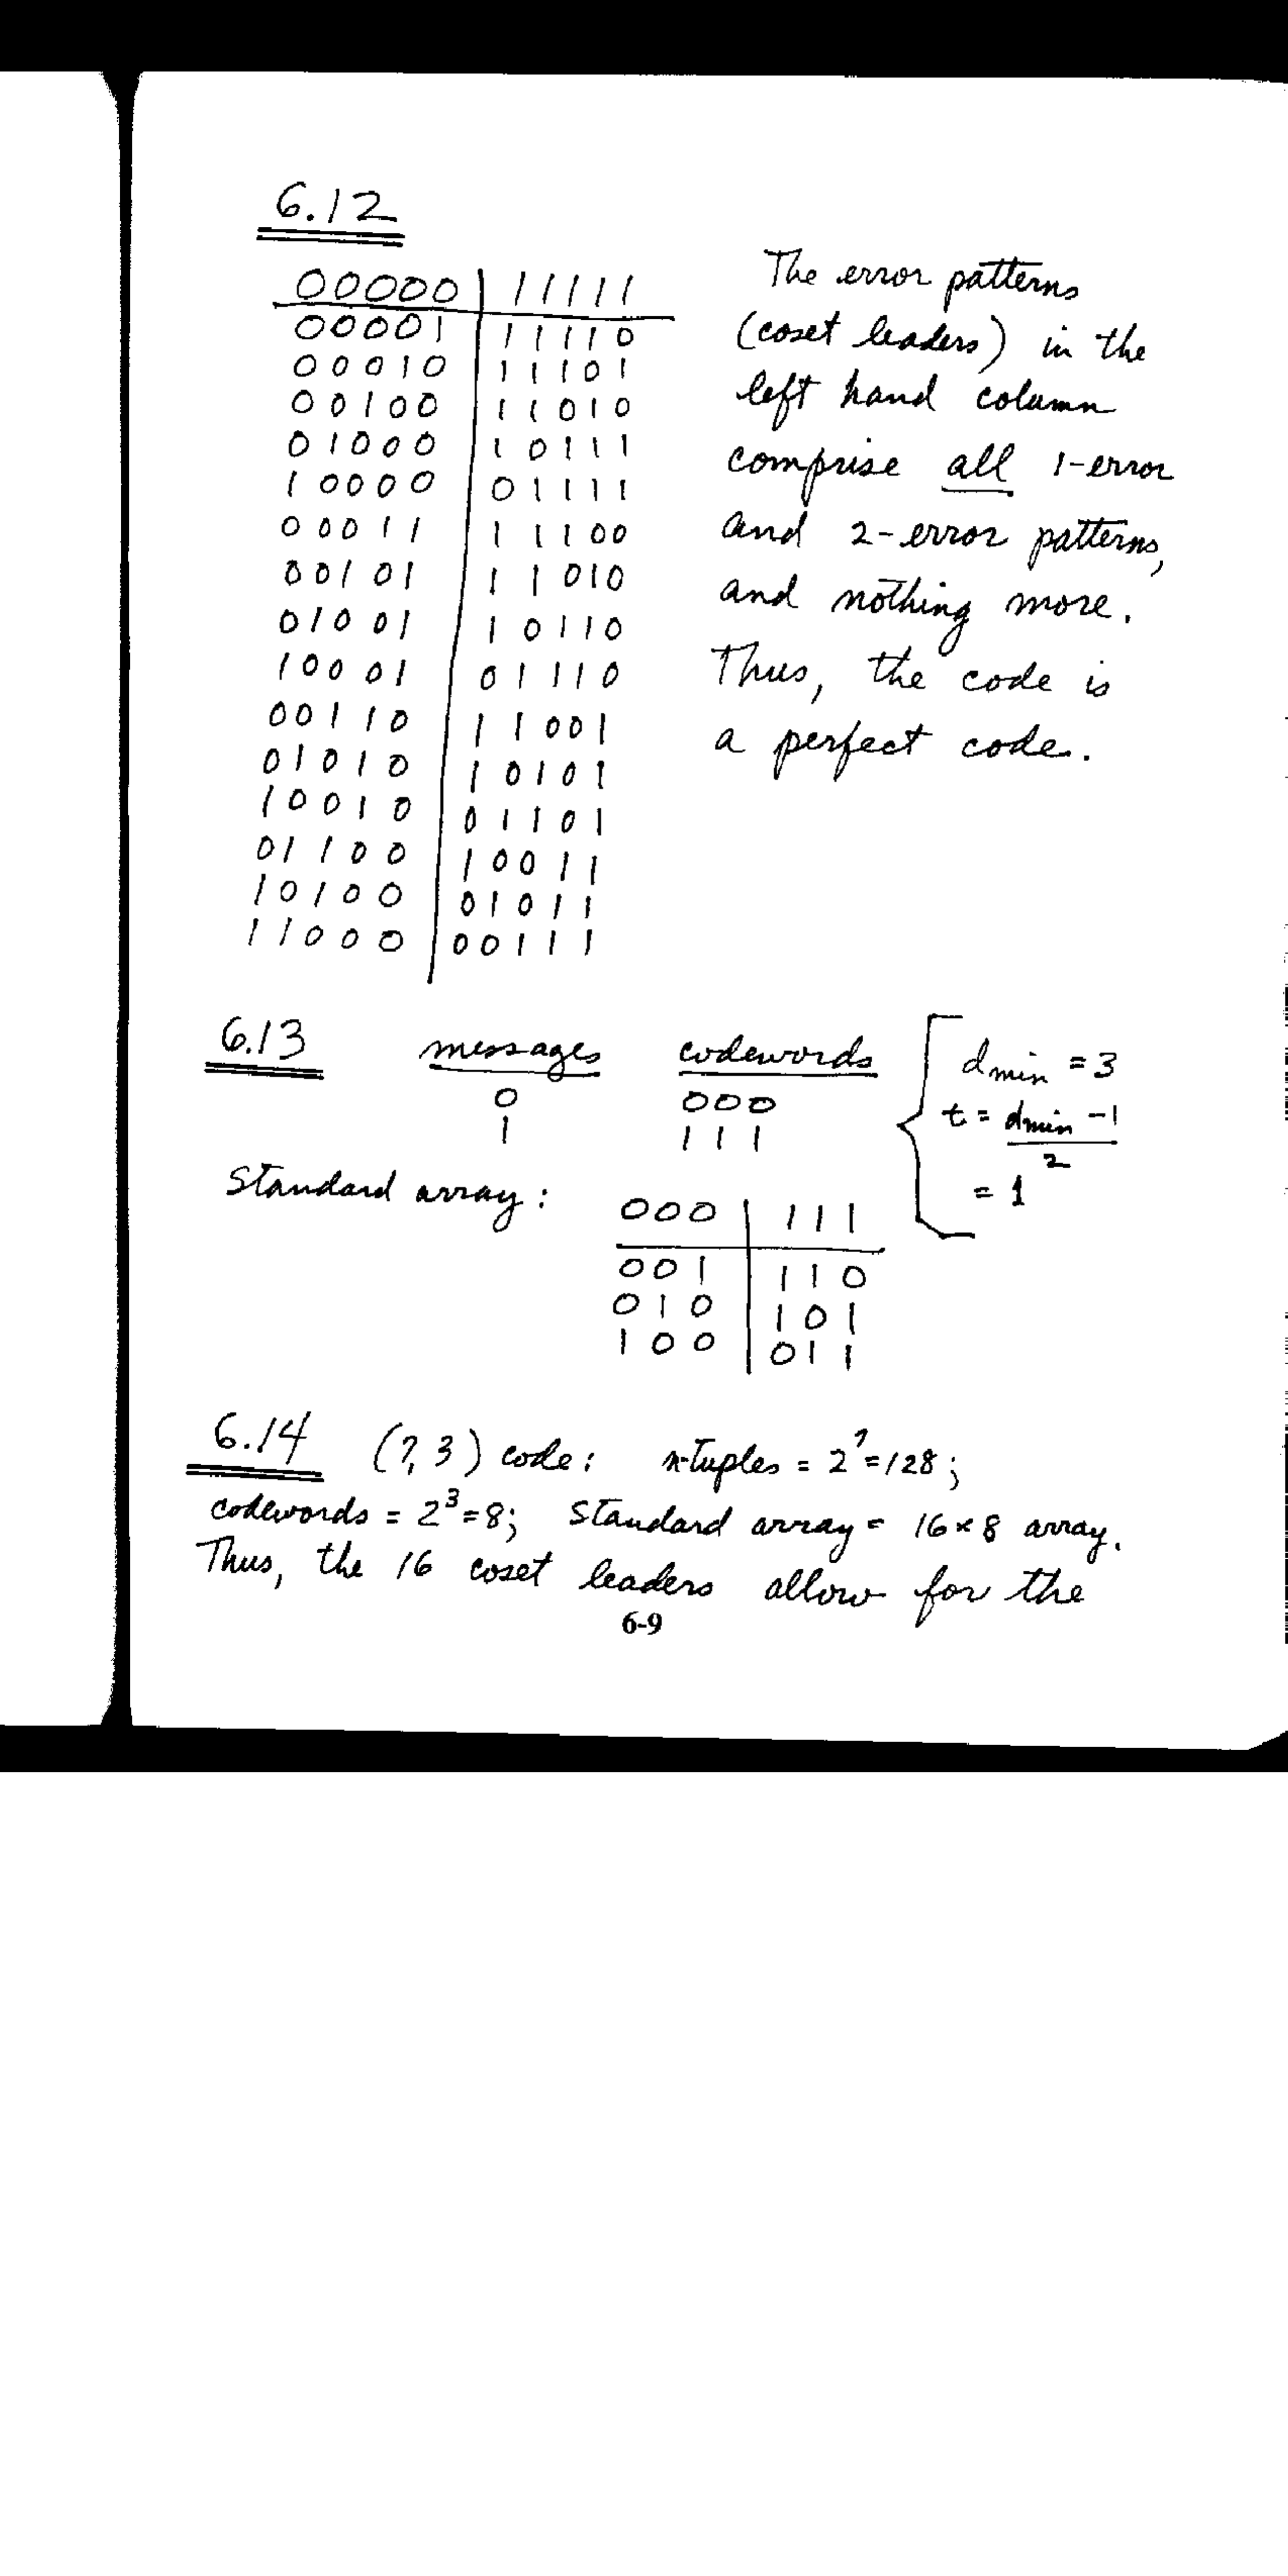 6.12
00000 | 11111
00001 | 11110
00010 | 11101
00100 | 11010
01000 | 10111
10000 | 01111
00011 | 11100
00101 | 11010
01001 | 10110
10001 | 01110
00110 | 11001
01010 | 10101
10010 | 01101
01100 | 10011
10100 | 01011
11000 | 00111
The error patterns
(coset leaders) in the
left hand column
comprise all 1-error
and 2-error patterns,
and nothing more.
Thus, the code is
a perfect code.
6.13 messages codewords
0 000
1 111
d min = 3
t = dmin - 1
2
= 1
Standard array:
000 | 111
001 | 110
010 | 101
100 | 011
6.14 (7, 3) code: n-tuples = 2^7 = 128;
codewords = 2^3 = 8; Standard array = 16 x 8 array.
Thus, the 16 coset leaders allow for the
6-9